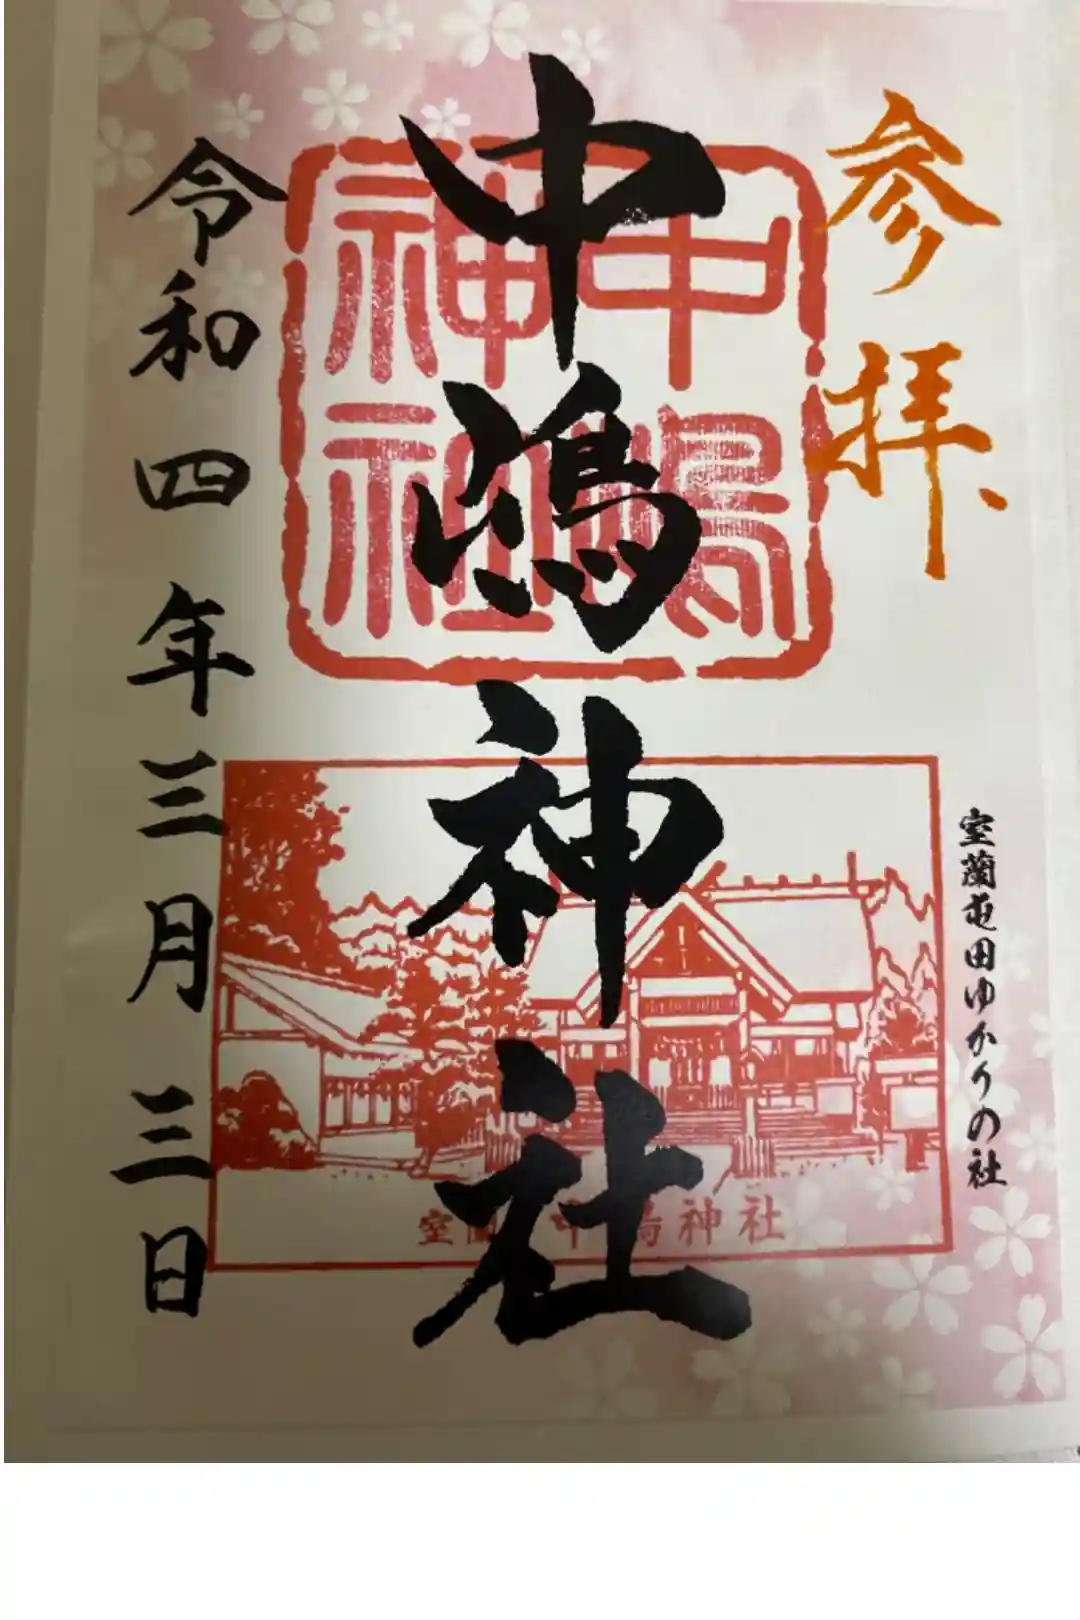 参拝
室蘭屯田ゆかりの社
中嶋
神社
中嶋神社
室蘭 中嶋神社
令和四年三月三日